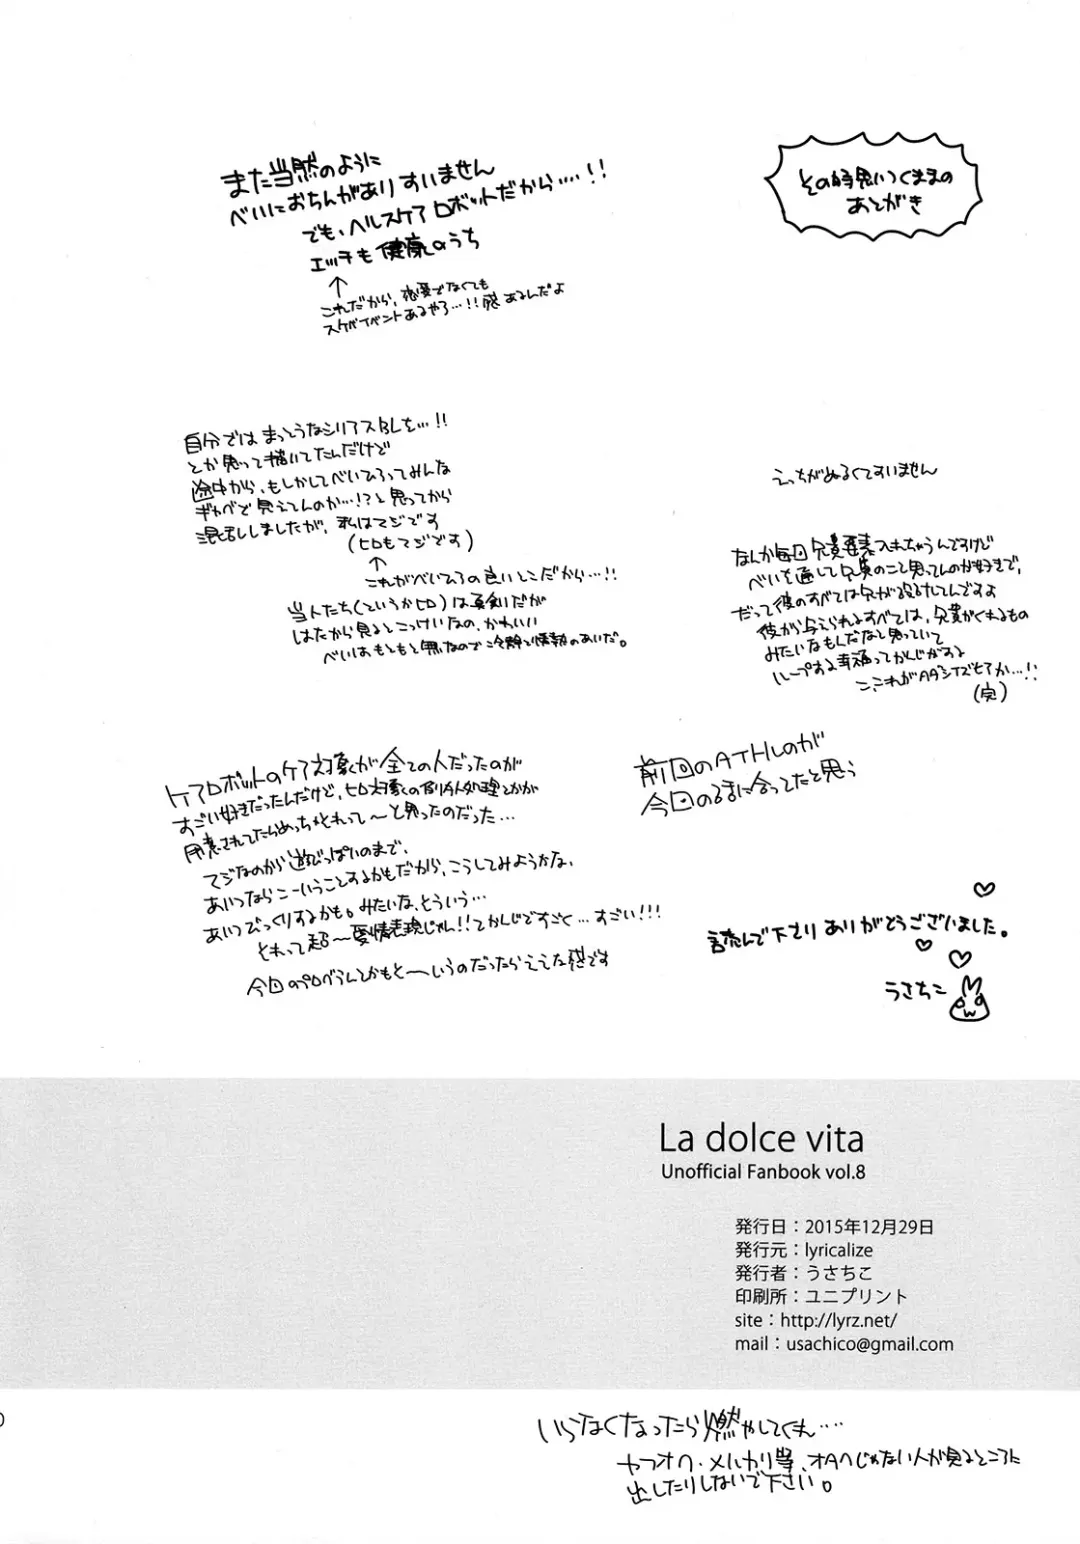 その時思いつくままの
あとがき
また当然のように
べいにおちんがありすいません
でも、ヘルスケアロボットだから・・・・!!
エッチも健康のうち
↑
これだから、恋愛でなくても
スケベイベントあるやろ…!!感あるんだよ
自分ではまっとうなシリアスBLを…!!
とか思って描いてたんだけど
途中から、もしかしてべいひろってみんな
ギャグで見えてんのか…!?と思ってから
混乱しましたが、私はマジです
(ヒロもマジです)
↑
これがべいひろの良いとこだから…!!
当人たち(というかヒロ)は真剣だが
はたから見るとこっけいなの、かわいい
べいはもともと無なので冷静と情熱のあいだ。
えっちがぬるくてすいません
なんか毎回兄貴要素入れちゃうんですけど
べいを通して兄貴のこと思ってんのが好きで、
だって彼のすべては兄が設けてんですよ
彼から与えられるすべては、兄貴がくれるもの
みたいなもんだなと思っていて
ループする幸福ってかんじがする
こ、これがAAシナズモアか…!!
(完)
ケアロボットのケア対象が全ての人だったのが
すごい好きだったんだけど、ヒロ対象の
用意されてたらめっちゃとれって〜と思ったのだった…
マジなのから遊びっぽいのまで、
あいつならこーいうことするかもだから、こうしてみようかな、
あいつびっくりするかも。みたいな、そういう…
それって超〜愛情表現じゃん!!てかんじですごく…すごい!!!
今回のプログラムとかもそ〜いうのだったらいいな感です
前回のATHLのが
今回のるまに合ってたと思う
読んで下さりありがとうございました。
うさちこ
La dolce vita
Unofficial Fanbook vol.8
発行日：2015年12月29日
発行元：lyricalize
発行者：うさちこ
印刷所：ユニプリント
site：http://lyrz.net/
mail：usachico@gmail.com
いらなくなったら燃やしてくれ・・・・
ヤフオク・メルカリ等、オタクじゃない人が見るところに
出したりしないで下さい。